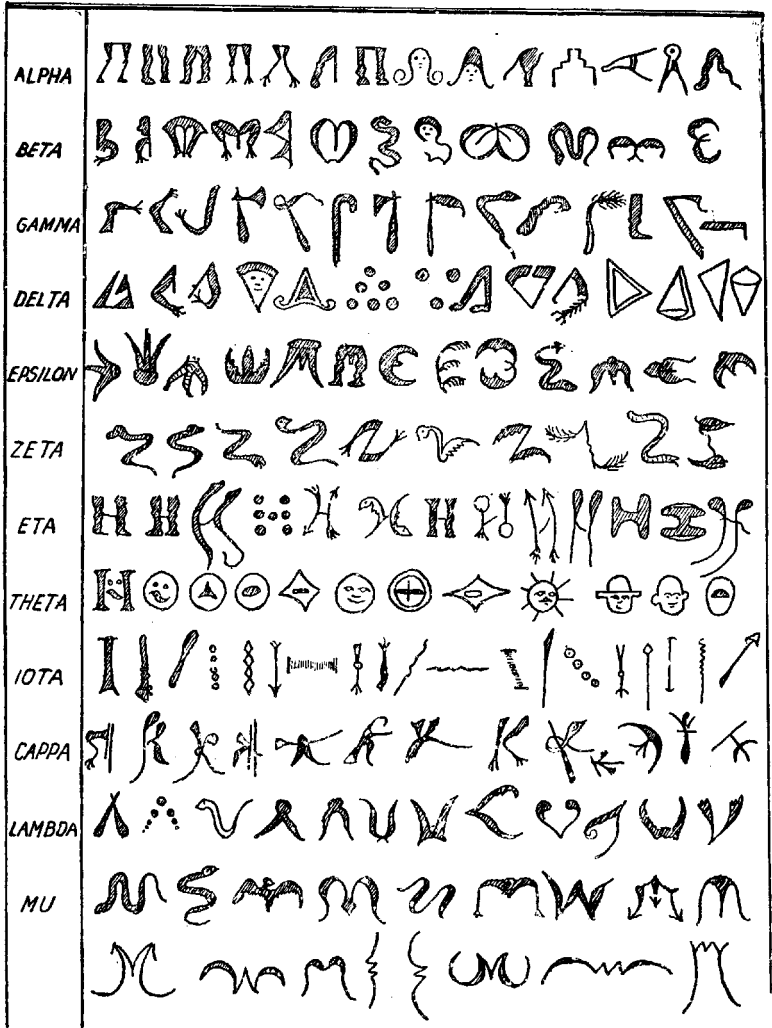 ALPHA
BETA
GAMMA
DELTA
EPSILON
ZETA
ETA
THETA
IOTA
CAPPA
LAMBDA
MU